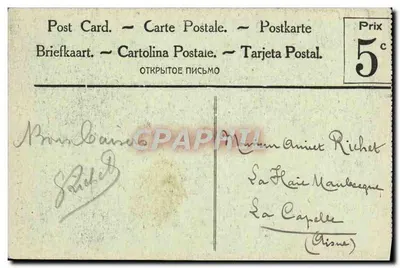 Post Card. ~ Carte Postale. ~ Postkarte
Briefkaart. ~ Cartolina Postale. ~ Tarjeta Postal.
ОТКРЫТОЕ ПИСЬМО
Prix
5c
Bons Baisers
Richet
Richet
La Haie
La Capelle
(Aisne)